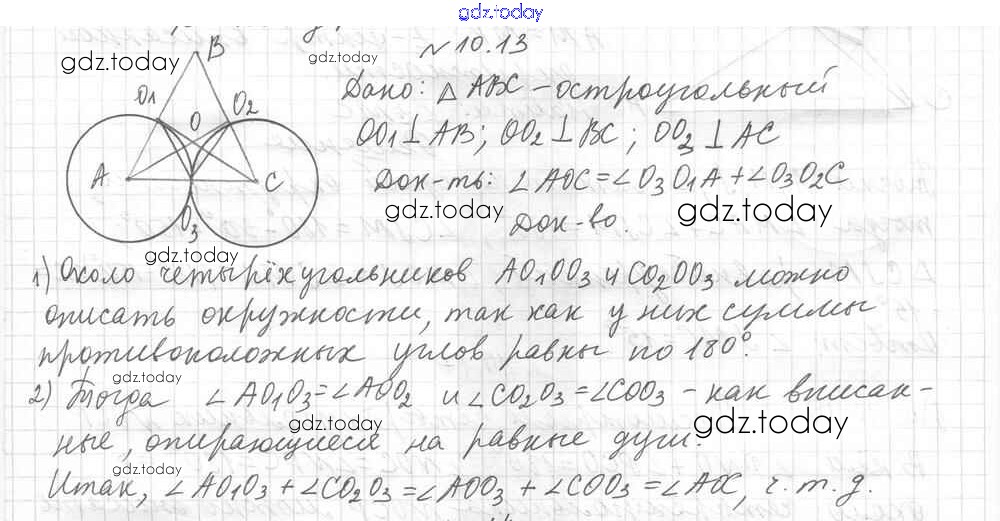 gdz.today
№ 10.13
B
gdz.today
gdz.today
Дано: △ ABC - остроугольный
O1
O
O2
OO1 ⊥ AB; OO2 ⊥ BC; OO3 ⊥ AC
A
C
Док-ть: ∠AOC = ∠O3O1A + ∠O3O2C
gdz.today
gdz.today
O3
Док-во.
gdz.today
1) Около четырёхугольников AO1OO3 и CO2OO3 можно
описать окружности, так как у них суммы
противоположных углов равны по 180°.
gdz.today
2) Тогда ∠AO1O3=∠AOO2 и ∠CO2O3=∠COO3 - как вписан-
gdz.today
gdz.today
ные, опирающиеся на равные дуги.
gdz.today
gdz.today
Итак, ∠AO1O3 + ∠CO2O3 = ∠AOO3 + ∠COO3 = ∠AOC, ч.т.д.